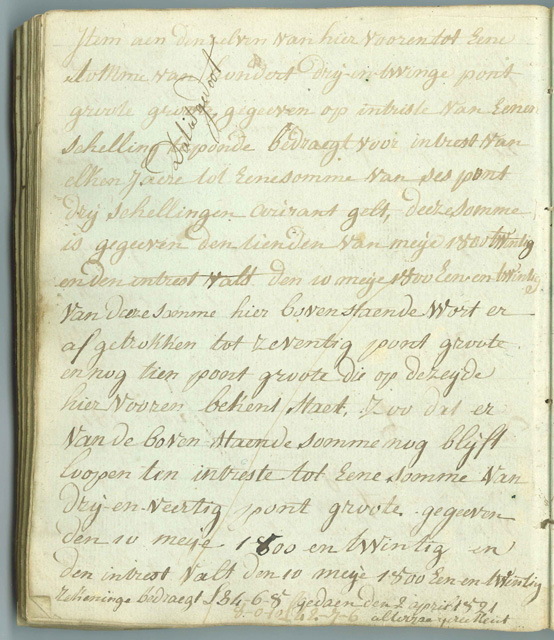 Item aen denzelven van hier vooren tot Eene
somme van hondert drij-en-twinge pont
groote gegeven op intriste van Eenen
schelling ponde bedraegt voor intrest van
elken Jaere tot Eene somme van ses pont
drij schellingen courant gelt, deeze somme
is gegeeven den tienden van meije 1800 twintig
en den intrest valt den 10 meije 1800 Een-en-twintig
van deeze somme hier bovenstaende wort er
af getrokken tot zeventig pont groote
en nog tien pont groote die op dezeijde
hier vooren bekent staet, Zoo dat er
van de boven staende somme nog blijft
loopen ten intreste tot Eene somme van
drij-en-veertig pont groote gegeeven
den 10 meije 1800 en twintig en
den intrest valt den 10 meije 1800 Een en twintig
rekeninge bedraegt 84-6-8 gedaen den 2 april 1821